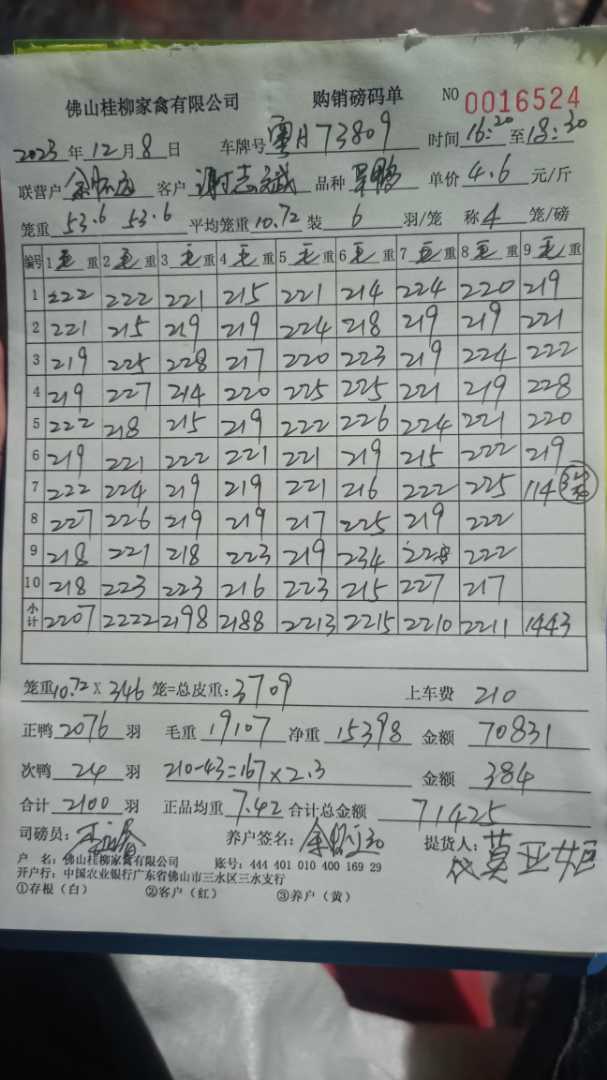 佛山桂柳家禽有限公司 购销磅码单 NO 0016524
2023 年 12 月 8 日 车牌号 粤A73809 时间 16:20 至 18:30
联营户 客户 谢志斌 品种 单价 4.6 元/斤
笼重 53.6 53.6 平均笼重 10.72 装 6 羽/笼 称 4 笼/磅
编号 1 毛 重 2 毛 重 3 毛 重 4 毛 重 5 毛 重 6 毛 重 7 毛 重 8 毛 重 9 毛 重
1 222 222 221 215 221 214 224 220 219
2 221 215 219 219 224 218 219 219 221
3 219 225 228 217 220 223 219 224 222
4 219 227 214 220 225 225 221 219 228
5 222 218 215 219 222 226 224 221 220
6 219 221 222 221 221 219 215 222 219
7 222 224 219 219 221 216 222 225 114
8 227 226 219 219 217 225 219 222
9 218 221 218 223 219 234 228 222
10 218 223 223 216 223 215 227 217
小计 2207 2222 2198 2188 2213 2215 2210 2211 1443
笼重 10.72 X 346 笼=总皮重: 3709 上车费 210
正鸭 2076 羽 毛重 19107 净重 15398 金额 70831
次鸭 24 羽 210-43=167×2.3 金额 384
合计 2100 羽 正品均重 7.42 合计总金额 71425
司磅员: 养户签名: 提货人: 代莫亚妲
户 名: 佛山桂柳家禽有限公司 账号: 444 401 010 400 169 29
开户行: 中国农业银行广东省佛山市三水区三水支行
①存根(白) ②客户(红) ③养户(黄)